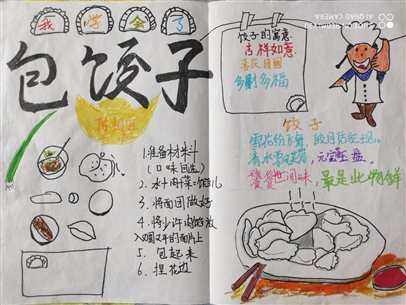 我学会了
包饺子
1.准备材料
(口味自选)
2.水+肉+菜=馅儿
3.将面团做好
4.将少许肉馅放
入圆又平的面片上
5 包起来
6 捏花边
饺子的寓意
吉祥如意
喜庆团圆
多财多福
饺子
雪花纷飞舞,
清水
元宝玉盘。
饕餮世间味,最是此物鲜
AI QUAD CAMERA